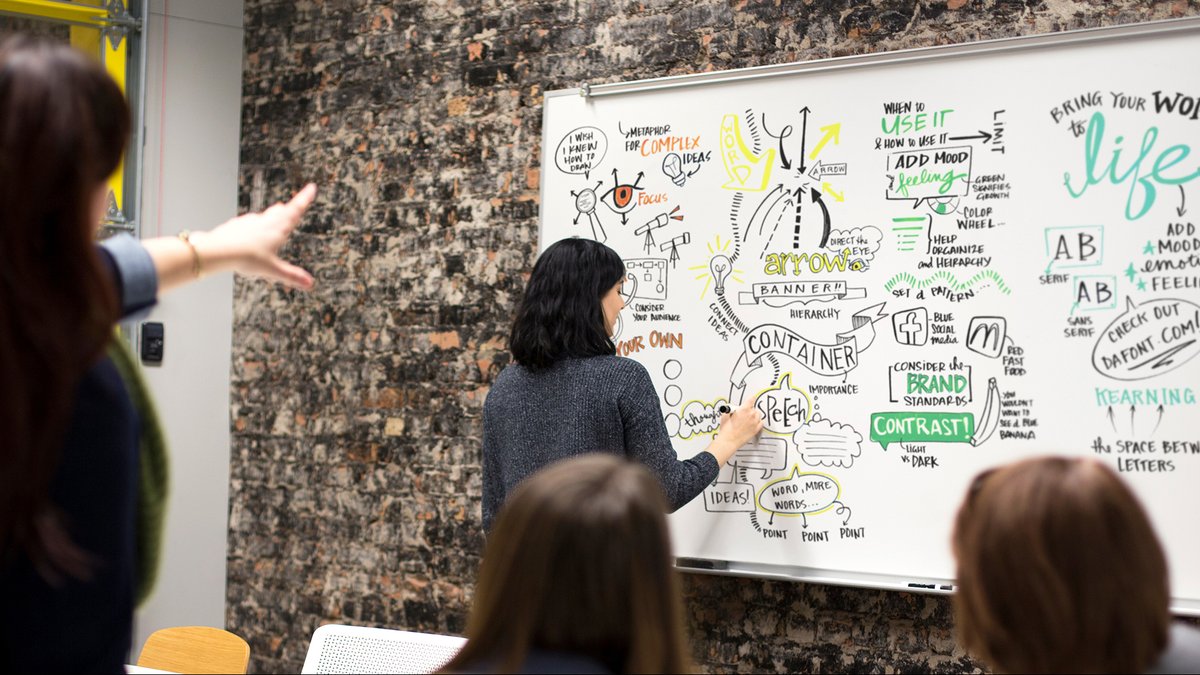 I WISH
I KNEW
HOW TO
DRAW
METAPHOR
FOR COMPLEX
IDEAS
FOCUS
CONSIDER
YOUR AUDIENCE
YOUR OWN
WORD
ARROW
DIRECT the
EYE
arrow
BANNER!!
HIERARCHY
CONNECT
IDEAS
CONTAINER
IMPORTANCE
thought
SPEECH
IDEAS!
WORD, MORE
WORDS...
POINT POINT POINT
WHEN TO
USE IT
& HOW TO USE IT
LIMIT
ADD MOOD
feeling
GREEN
SIGNIFIES
GROWTH
COLOR
WHEEL...
HELP
ORGANIZE
AND HEIRARCHY
SET A PATTERN...
f
BLUE
SOCIAL
MEDIA
M
RED
FAST
FOOD
CONSIDER the
BRAND
STANDARDS
YOU
WOULDN'T
WANT TO
SEE A BLUE
BANANA
CONTRAST!
LIGHT
VS DARK
BRING YOUR WOR
to life
AB
SERIF
AB
SANS
SERIF
ADD
MOOD
emotio
FEELIN
CHECK OUT
DAFONT.COM
KEARNING
the SPACE BETWE
LETTERS